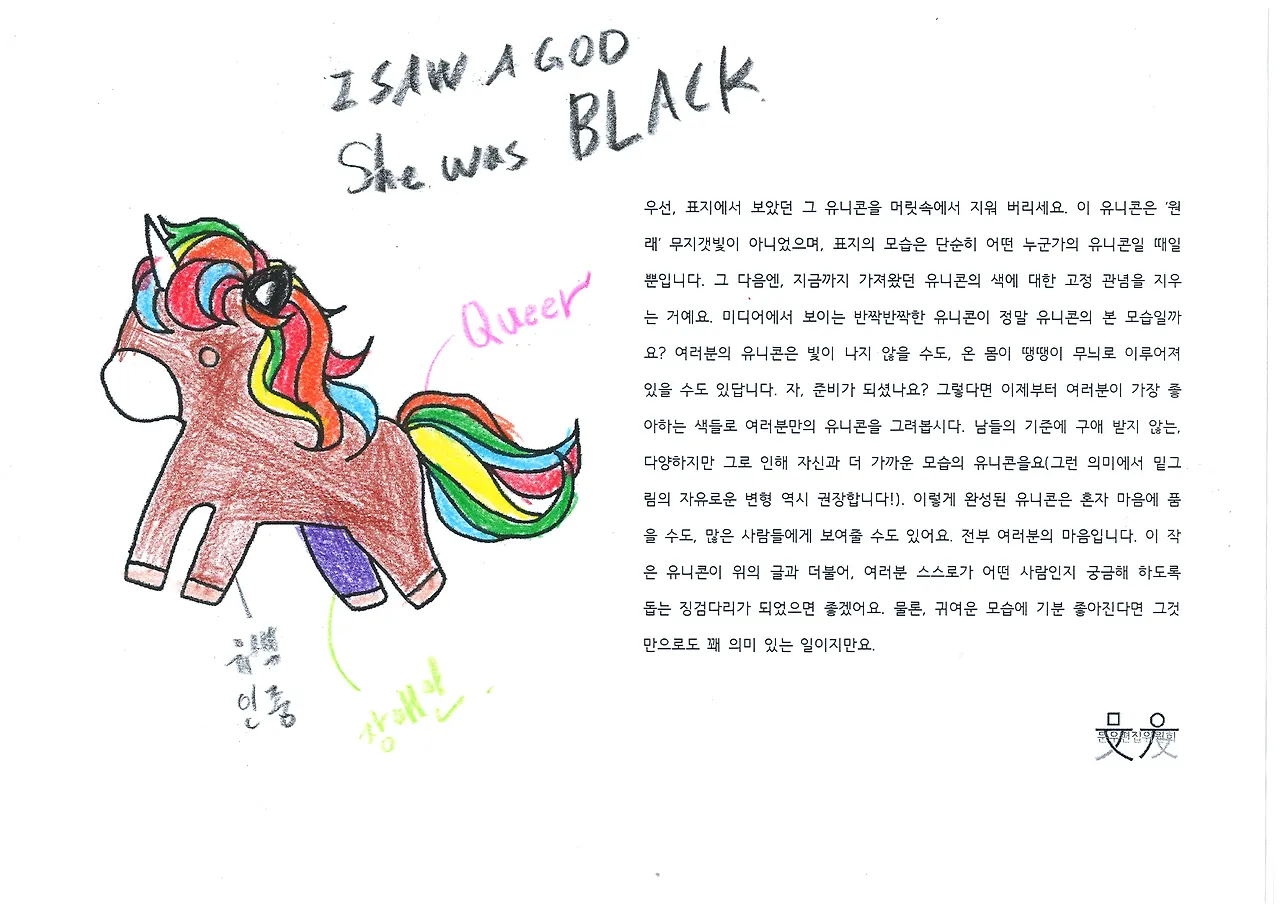 I SAW A GOD
She was BLACK.
Queer
우선, 표지에서 보았던 그 유니콘을 머릿속에서 지워 버리세요. 이 유니콘은 '원
래' 무지갯빛이 아니었으며, 표지의 모습은 단순히 어떤 누군가의 유니콘일 때일
뿐입니다. 그 다음엔, 지금까지 가져왔던 유니콘의 색에 대한 고정 관념을 지우
는 거예요. 미디어에서 보이는 반짝반짝한 유니콘이 정말 유니콘의 본 모습일까
요? 여러분의 유니콘은 빛이 나지 않을 수도, 온 몸이 땡땡이 무늬로 이루어져
있을 수도 있답니다. 자, 준비가 되셨나요? 그렇다면 이제부터 여러분이 가장 좋
아하는 색들로 여러분만의 유니콘을 그려봅시다. 남들의 기준에 구애 받지 않는,
다양하지만 그로 인해 자신과 더 가까운 모습의 유니콘을요(그런 의미에서 밑그
림의 자유로운 변형 역시 권장합니다!). 이렇게 완성된 유니콘은 혼자 마음에 품
을 수도, 많은 사람들에게 보여줄 수도 있어요. 전부 여러분의 마음입니다. 이 작
은 유니콘이 위의 글과 더불어, 여러분 스스로가 어떤 사람인지 궁금해 하도록
돕는 징검다리가 되었으면 좋겠어요. 물론, 귀여운 모습에 기분 좋아진다면 그것
만으로도 꽤 의미 있는 일이지만요.
유색
인종
장애인
문우
문우편집위원회